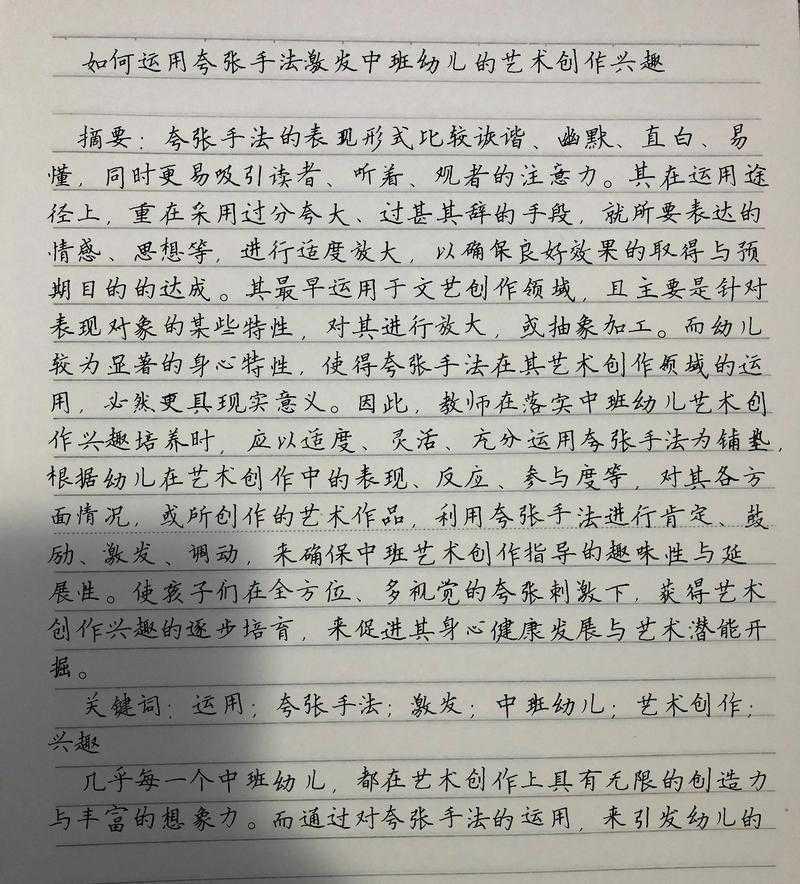 如何运用夸张手法激发中班幼儿的艺术创作兴趣
摘要：夸张手法的表现形式比较诙谐、幽默、直白、易
懂，同时更易吸引读者、听着、观者的注意力。其在运用途
径上，重在采用过分夸大、过甚其辞的手段，就所要表达的
情感、思想等，进行适度放大，以确保良好效果的取得与预
期目的的达成。其最早运用于文艺创作领域，且主要是针对
表现对象的某些特性，对其进行放大，或抽象加工。而幼儿
较为显著的身心特性，使得夸张手法在其艺术创作领域的运
用，必然更具现实意义。因此，教师在落实中班幼儿艺术创
作兴趣培养时，应以适度、灵活、充分运用夸张手法为铺垫，
根据幼儿在艺术创作中的表现、反应、参与度等，对其各方
面情况，或所创作的艺术作品，利用夸张手法进行肯定、鼓
励、激发、调动，来确保中班艺术创作指导的趣味性与延
展性。使孩子们在全方位、多视觉的夸张刺激下，获得艺术
创作兴趣的逐步培育，来促进其身心健康发展与艺术潜能开
掘。
关键词：运用；夸张手法；激发；中班幼儿；艺术创作；
兴趣
几乎每一个中班幼儿，都在艺术创作上具有无限的创造力
与丰富的想象力。而通过对夸张手法的运用，来引发幼儿的